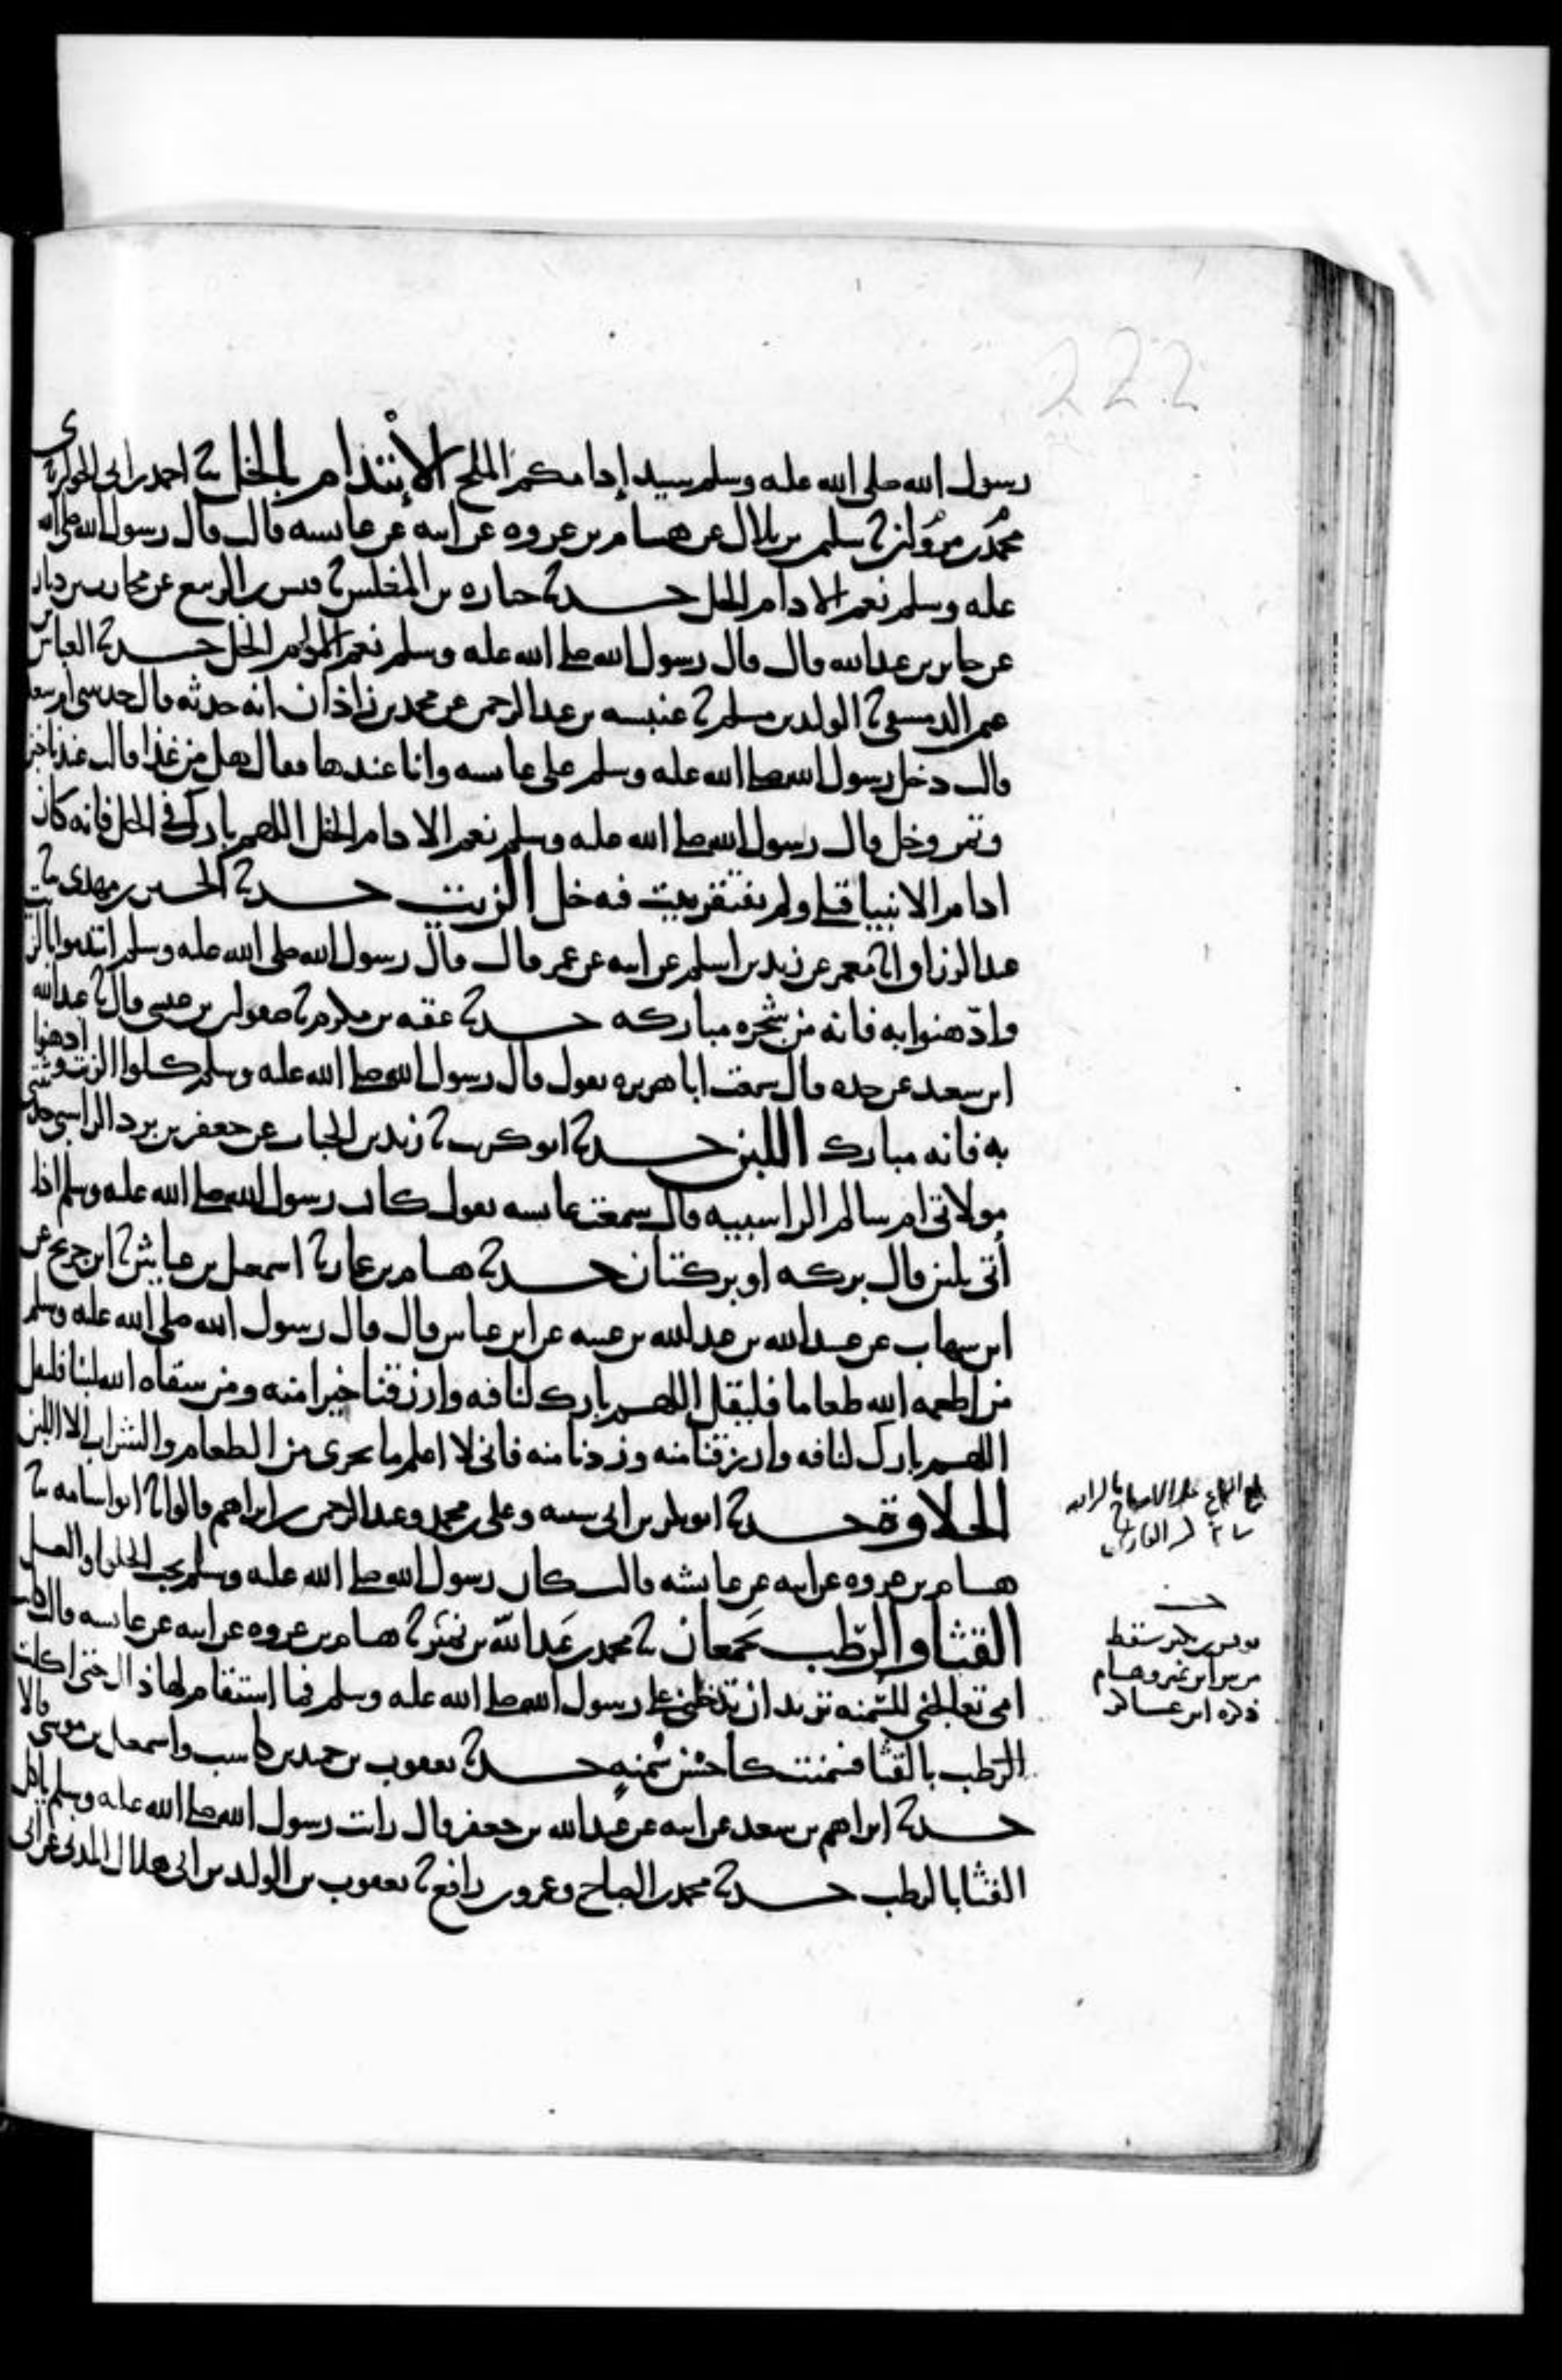 222
رسول الله صلى الله عليه وسلم سيد إدامكم الملح الإئتدام بالخل ثنا احمد بن ابي الحواري ثنا
محمد بن مروان ثنا سليمن بن بلال عن هشام بن عروه عن ابيه عن عائشه قالت قال رسول الله صلى الله
عليه وسلم نعم الادام الخل حدثنا جباره بن المغلس ثنا قيس بن الربيع عن محارب بن دثار
عن جابر بن عبد الله قال قال رسول الله صلى الله عليه وسلم نعم الادام الخل حدثنا العباس بن
عثمن الدمشقي ثنا الوليد بن مسلم ثنا عنبسه بن عبد الرحمن عن محمد بن زاذان انه حدثه قال حدثتني ام سعد
قالت دخل رسول الله صلى الله عليه وسلم على عائشه وانا عندها فقال هل من غذا قالت عندنا خبز
وتمر وخل فقال رسول الله صلى الله عليه وسلم نعم الادام الخل اللهم بارك في الخل فانه كان
ادام الانبيا قبلي ولم يفتقر بيت فيه خل الزيت حدثنا الحسين بن مهدي ثنا
عبد الرزاق انا معمر عن زيد بن اسلم عن ابيه عن عمر قال قال رسول الله صلى الله عليه وسلم ائتدموا بالزيت
وادهنوا به فانه من شجره مباركه حدثنا عقبه بن مكرم ثنا صفوان بن عيسى قال ثنا عبد الله
ابن سعيد عن جده قال سمعت ابا هريره يقول قال رسول الله صلى الله عليه وسلم كلوا الزيت وادهنوا
به فانه مبارك اللبن حدثنا ابو كريب ثنا زيد بن الحباب عن جعفر بن برد الراسبي حدثتني
مولاتي ام سالم الراسبيه قالت سمعت عائشه تقول كان رسول الله صلى الله عليه وسلم اذا
أتي بلبن قال بركه او بركتان حدثنا هشام بن عمار ثنا اسمعيل بن عياش ثنا ابن جريج عن
ابن شهاب عن عبيد الله بن عبد الله بن عتبه عن ابن عباس قال قال رسول الله صلى الله عليه وسلم
من اطعمه الله طعاما فليقل اللهم بارك لنا فيه وارزقنا خيرا منه ومن سقاه الله لبنا فليقل
اللهم بارك لنا فيه وارزقنا منه وزدنا منه فاني لا اعلم ما يجزي من الطعام والشراب الا اللبن
الحلاوة حدثنا ابو بكر بن ابي شيبه وعلي بن محمد وعبد الرحمن بن ابراهيم قالوا ثنا ابو اسامه ثنا
هشام بن عروه عن ابيه عن عائشه قالت كان رسول الله صلى الله عليه وسلم يحب الحلوا والعسل
القثا والرطب يجمعان ثنا محمد بن عبد الله بن نمير ثنا هشام بن عروه عن ابيه عن عائشه قالت كانت
امي تعالجني للسمنه تريد ان تدخلني على رسول الله صلى الله عليه وسلم فما استقام لها ذلك حتى اكلت
الرطب بالقثا فسمنت كاحسن سمنه حدثنا يعقوب بن حميد بن كاسب واسمعيل بن موسى قالا
حدثنا ابراهيم بن سعد عن ابيه عن عبد الله بن جعفر قال رايت رسول الله صلى الله عليه وسلم ياكل
القثا بالرطب حدثنا محمد بن الصباح وعمرو بن رافع ثنا يعقوب بن الوليد بن ابي هلال المدني عن ابي
يونس بن بكير سقط
من بين ابن نمير وهشام
ذكره ابن عساكر